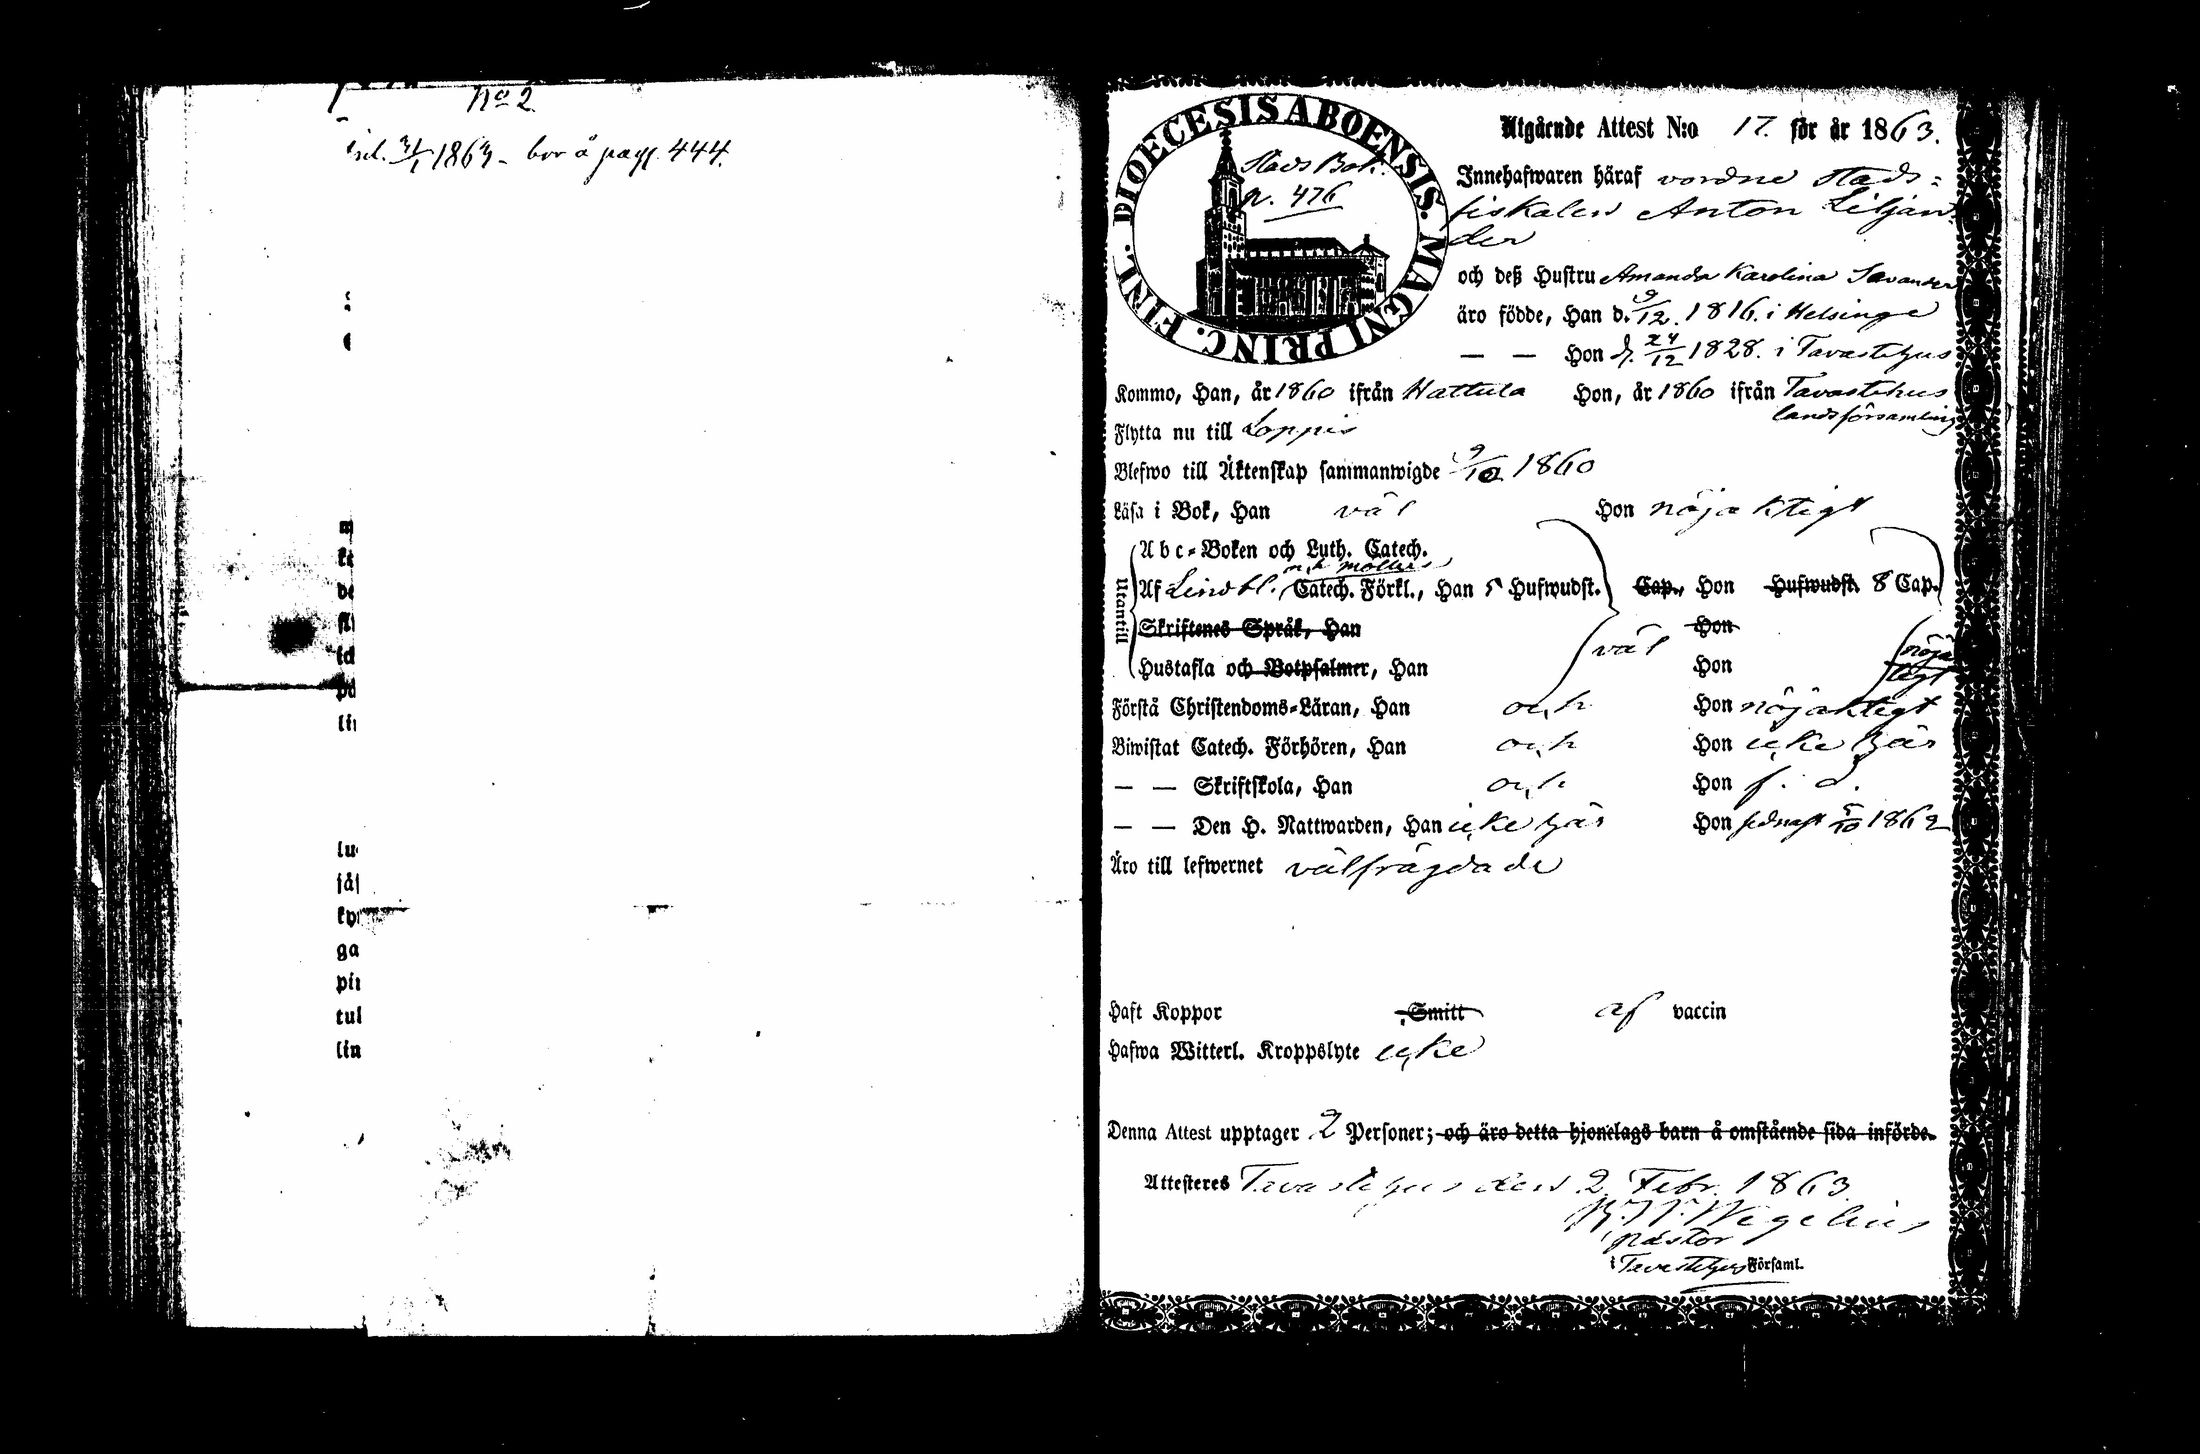 No 2.
inl. 31/1 1863 - bor å pag. 444.
m
ke
de
id
på
lin
lu
jäs
kyr
ga
pii
tul
lin
DIOECESIS ABOENSIS. MAGNI PRINC. FINL.
Stads Bok.
p. 476
Utgående Attest N:o 17. för år 1863.
Innehafwaren häraf vordne Stads=
fiskalen Anton Liljan=
der
och deß Hustru Amanda Karolina Savander
äro födde, Han d. 9/12. 1816. i Helsinge
— — Hon d. 24/12 1828. i Tavastehus
Kommo, Han, år 1860 ifrån Hattula Hon, år 1860 ifrån Tavastehus
landsförsamling
Flytta nu till Loppis
Blefwo till Äktenskap sammanwigde 9/10 1860
Läsa i Bok, Han väl Hon nöjaktigt
Utantill
Abc=Boken och Luth. Catech.
och Möllers
Af Lindbl. Catech. Förkl., Han 5 Hufwudst. Cap., Hon Hufwudst. 8 Cap.
Skriftenes Språk, Han Hon
väl nöjaktigt
Hustafla och Botpsalmer, Han Hon
Förstå Christendoms=Läran, Han och Hon nöjaktigt
Biwistat Catech. Förhören, Han och Hon icke här
— — Skriftskola, Han och Hon f. d.
— — Den H. Nattwarden, Han icke här Hon sednast 5/10 1862
Äro till lefwernet välfrägdade
Haft Koppor Smitt af vaccin
Hafwa Witterl. Kroppslyte icke
Denna Attest upptager 2 Personer; och äro detta hjonelags barn å omstående sida införde.
Attesteres Tavastehus den 2 Febr. 1863
Wegelius
pastor
i Tavastehus Församl.